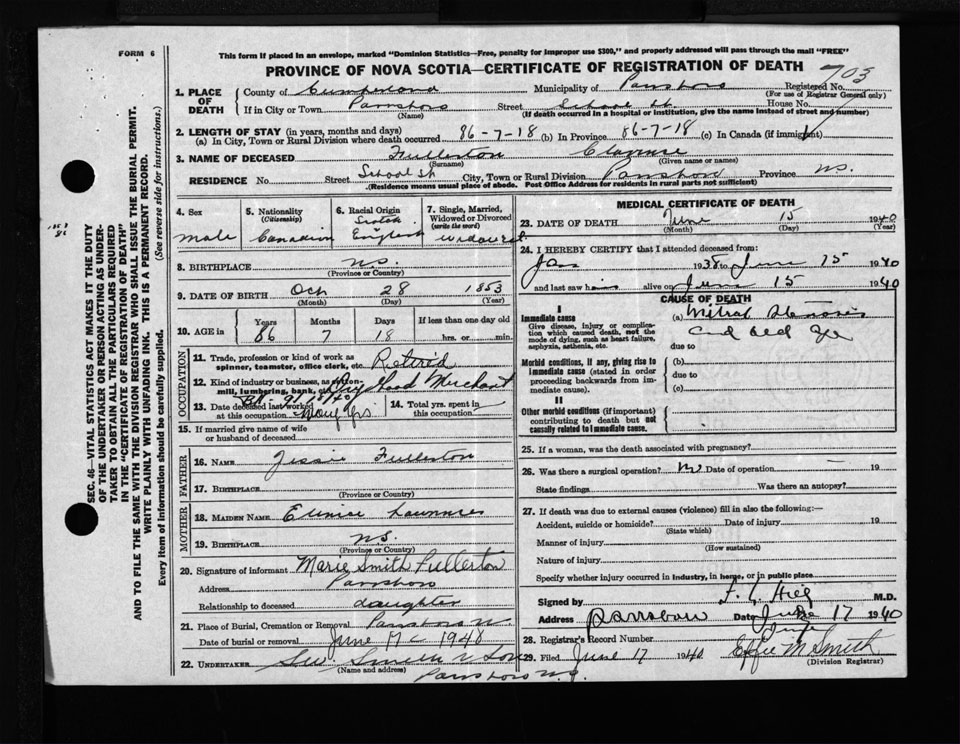 FORM 6
This form if placed in an envelope, marked "Dominion Statistics—Free, penalty for improper use $300," and properly addressed will pass through the mail "FREE"
PROVINCE OF NOVA SCOTIA—CERTIFICATE OF REGISTRATION OF DEATH
703
1. PLACE OF DEATH County of Cumberland Municipality of Parrsboro Registered No.
(For use of Registrar General only)
If in City or Town Parrsboro Street School St. House No.
(Name) (If death occurred in a hospital or institution, give the name instead of street and number)
2. LENGTH OF STAY (in years, months and days)
(a) In City, Town or Rural Division where death occurred 86-7-18 (b) In Province 86-7-18 (c) In Canada (if immigrant)
3. NAME OF DECEASED Fullerton Clarence
(Surname) (Given name or names)
RESIDENCE No. Street School St City, Town or Rural Division Parrsboro Province N.S.
(Residence means usual place of abode. Post Office Address for residents in rural parts not sufficient)
4. Sex
Male
5. Nationality
(Citizenship)
Canadian
6. Racial Origin
Scotch
English
7. Single, Married, Widowed or Divorced
(write the word)
Widower
8. BIRTHPLACE N.S.
(Province or Country)
9. DATE OF BIRTH Oct 28 1853
(Month) (Day) (Year)
10. AGE in
Years Months Days If less than one day old
86 7 18 hrs. or min.
OCCUPATION
11. Trade, profession or kind of work as spinner, teamster, office clerk, etc. Retired
12. Kind of industry or business, as cotton-mill, lumbering, bank, etc. Dry Good Merchant
13. Date deceased last worked at this occupation Many yrs
14. Total yrs. spent in this occupation
15. If married give name of wife or husband of deceased
FATHER
16. NAME Jessie Fullerton
17. BIRTHPLACE
(Province or Country)
MOTHER
18. MAIDEN NAME Eunice
19. BIRTHPLACE N.S.
(Province or Country)
20. Signature of informant Marie Smith Fullerton
Address Parrsboro
Relationship to deceased daughter
21. Place of Burial, Cremation or Removal Parrsboro
Date of burial or removal June 1948
22. UNDERTAKER Smith & Son
(Name and address)
Parrsboro N.S.
MEDICAL CERTIFICATE OF DEATH
23. DATE OF DEATH June 15 1940
(Month) (Day) (Year)
24. I HEREBY CERTIFY that I attended deceased from:
Jan 1938 to June 15 1940
and last saw h alive on June 15 1940
CAUSE OF DEATH
I
Immediate cause
Give disease, injury or complication which caused death, not the mode of dying, such as heart failure, asphyxia, asthenia, etc.
(a) Mitral Stenosis
and old age
due to
Morbid conditions, if any, giving rise to immediate cause (stated in order proceeding backwards from immediate cause).
(b)
due to
(c)
II
Other morbid conditions (if important) contributing to death but not causally related to immediate cause.
25. If a woman, was the death associated with pregnancy?
26. Was there a surgical operation? No Date of operation 19
State findings Was there an autopsy?
27. If death was due to external causes (violence) fill in also the following:—
Accident, suicide or homicide? Date of injury 19
(State which)
Manner of injury
(How sustained)
Nature of injury
Specify whether injury occurred in industry, in home, or in public place
Signed by Hill M.D.
Address Parrsboro Date June 17 1940
28. Registrar's Record Number
29. Filed June 17 1940 Effie M Smith
(Division Registrar)
SEC. 46—VITAL STATISTICS ACT MAKES IT THE DUTY
OF THE UNDERTAKER OR PERSON ACTING AS UNDER-
TAKER TO OBTAIN ALL THE PARTICULARS REQUIRED
IN THE "CERTIFICATE OF REGISTRATION OF DEATH"
AND TO FILE THE SAME WITH THE DIVISION REGISTRAR WHO SHALL ISSUE THE BURIAL PERMIT.
WRITE PLAINLY WITH UNFADING INK. THIS IS A PERMANENT RECORD.
Every item of information should be carefully supplied. (See reverse side for instructions.)